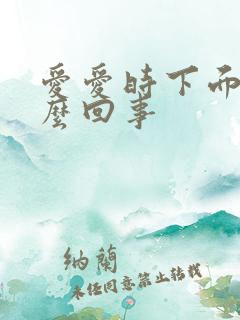 愛愛時下面
麼回事
納蘭
未經同意禁止轉載